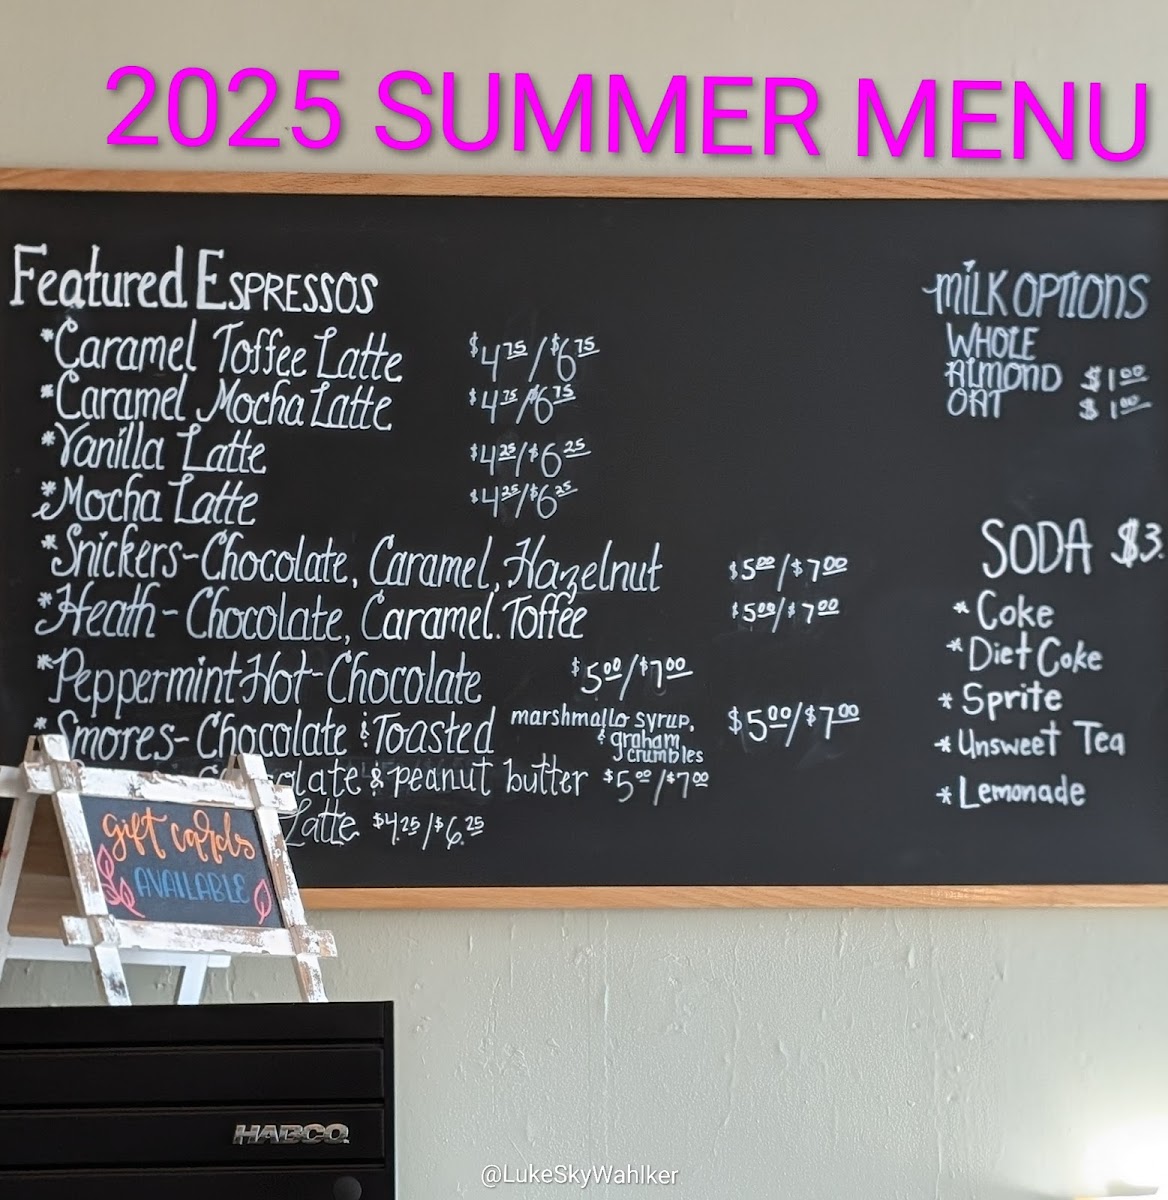 2025 SUMMER MENU
Featured Espressos
*Caramel Toffee Latte $4.75/$6.75
*Caramel Mocha Latte $4.75/$6.75
*Vanilla Latte $4.25/$6.25
*Mocha Latte $4.25/$6.25
*Snickers-Chocolate, Caramel, Hazelnut $5.00/$7.00
*Heath-Chocolate, Caramel. Toffee $5.00/$7.00
*Peppermint Hot-Chocolate $5.00/$7.00
*Smores-Chocolate & Toasted marshmallo syrup, & graham crumbles $5.00/$7.00
olate & peanut butter $5.00/$7.00
Latte $4.25/$6.25
MILK OPTIONS
WHOLE
ALMOND $1.00
OAT $1.00
SODA $3.
* Coke
* Diet Coke
* Sprite
* Unsweet Tea
* Lemonade
gift cards
AVAILABLE
HABCO
@LukeSkyWahlker